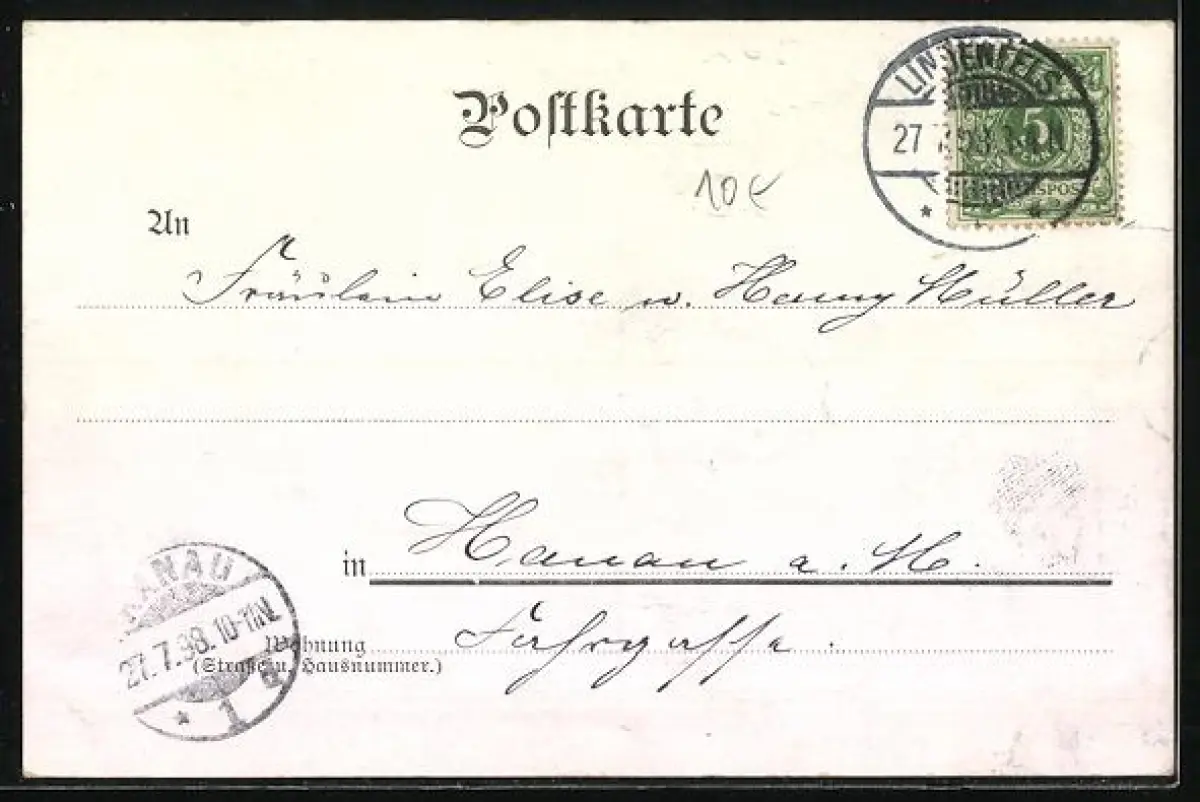 Postkarte
LINDENFELS
27 7.98.
5
10€
An
Fräulein Elise u. Henny Müller
in Hanau a. M.
HANAU
27.7.98.10-11N.
* 1
Wohnung Fahrgasse.
(Straße u. Hausnummer.)